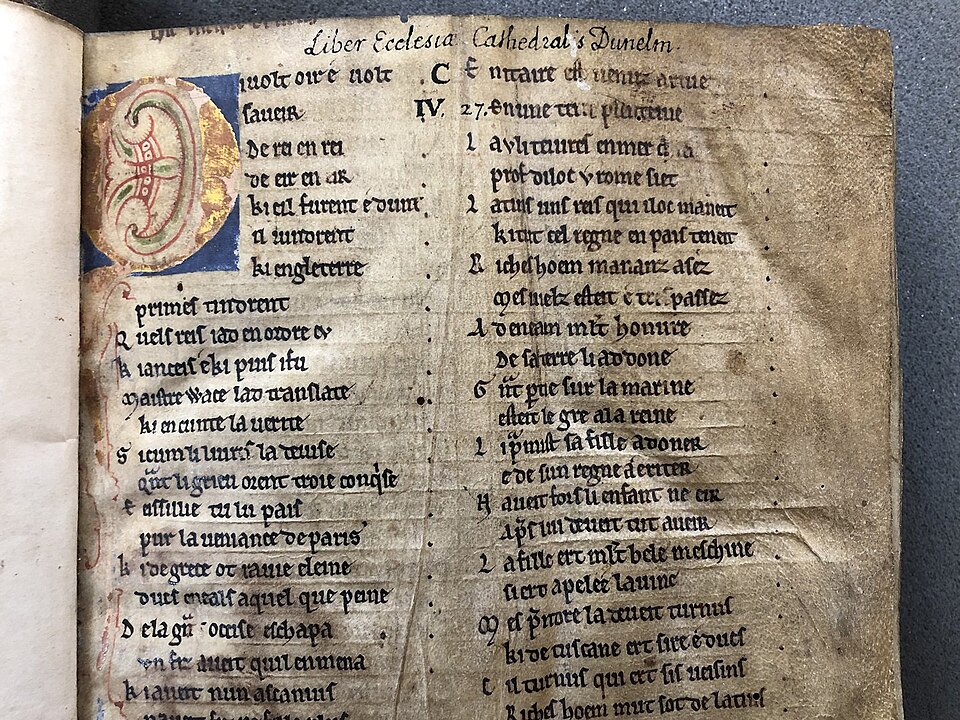 Liber Ecclesiæ Cathedralis Dunelm.
C
IV. 27.
Ki uolt oir e uolt
saueir
De rei en rei
de eir en eir
ki cil furent e dunt
il uindrent
ki engleterre
primes tindrent
Quels reis i ad en ordre ev
Ki anceis e ki puis i fu
Maistre Wace lad translate
ki en cunte la uerite
Si cum li liures la deuise
qnt li grieu orent troie conqise
E eissille tut lu pais
pur la ueniance de paris
Ki de grece ot rauie eleine
dues eneas a quel que peine
De la gnt occise eschapa
un fiz aueit quil en mena
Ki aueit nun ascanius
E n itaire est uenuz ariue
En une terre
L a v li teiures en mer
prof diloc v rome siet
Latins uns reis qui iloc maneit
ki tut cel regne en pais teneit
Riches hoem mananz asez
Mes uielz esteit e trespassez
A deneam mlt honure
De sa terre li ad done
Gnt ptie sur la marine
esteit le gre a la reine
Li pmist sa fille a doner
e de sun regne a eriter
Naueit fors li enfant ne eir
Aps lui deueit tut aueir
La fille ert mlt bele meschine
si ert apelee lauine
Mes pmore la deueit turnus
ki de tuscane ert sire e dues
Cil turnus qui ert sis ueisins
Riches hoem mut sot de latins